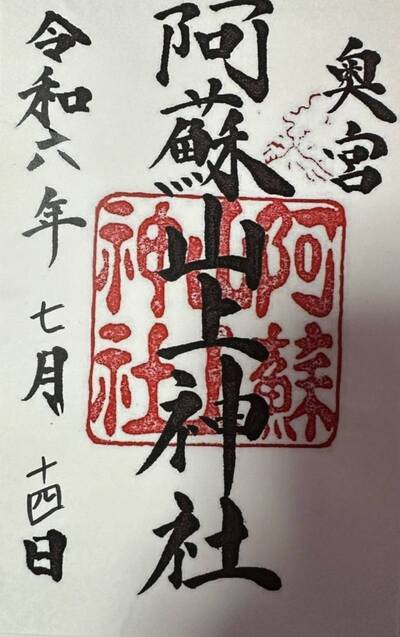 奥宮
阿蘇山上神社
阿蘇
山上
神社
令和六年七月十四日